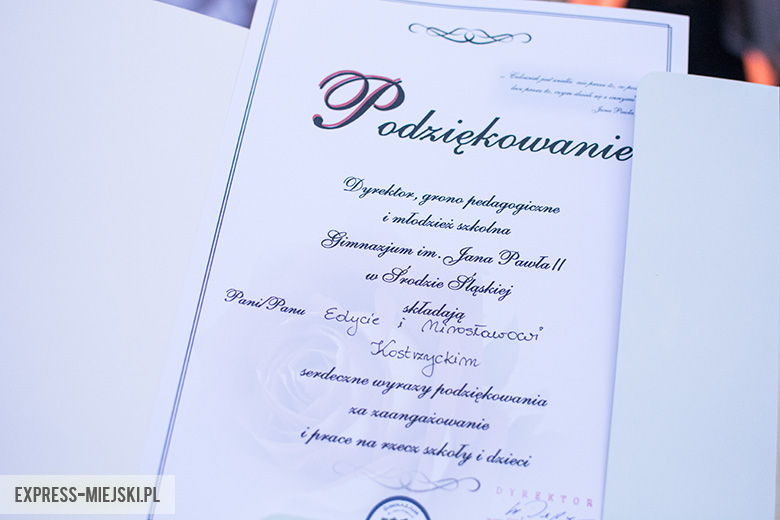 „ Człowiek jest wielki, nie przez to, co
lecz przez to, czym dzieli się z innymi"
Jan Paweł
Podziękowanie
Dyrektor, grono pedagogiczne
i młodzież szkolna
Gimnazjum im. Jana Pawła II
w Środzie Śląskiej
składają
Pani/Panu Edycie i Mirosławowi
Kostrzyckim
serdeczne wyrazy podziękowania
za zaangażowanie
i prace na rzecz szkoły i dzieci
DYREKTOR
EXPRESS-MIEJSKI.PL